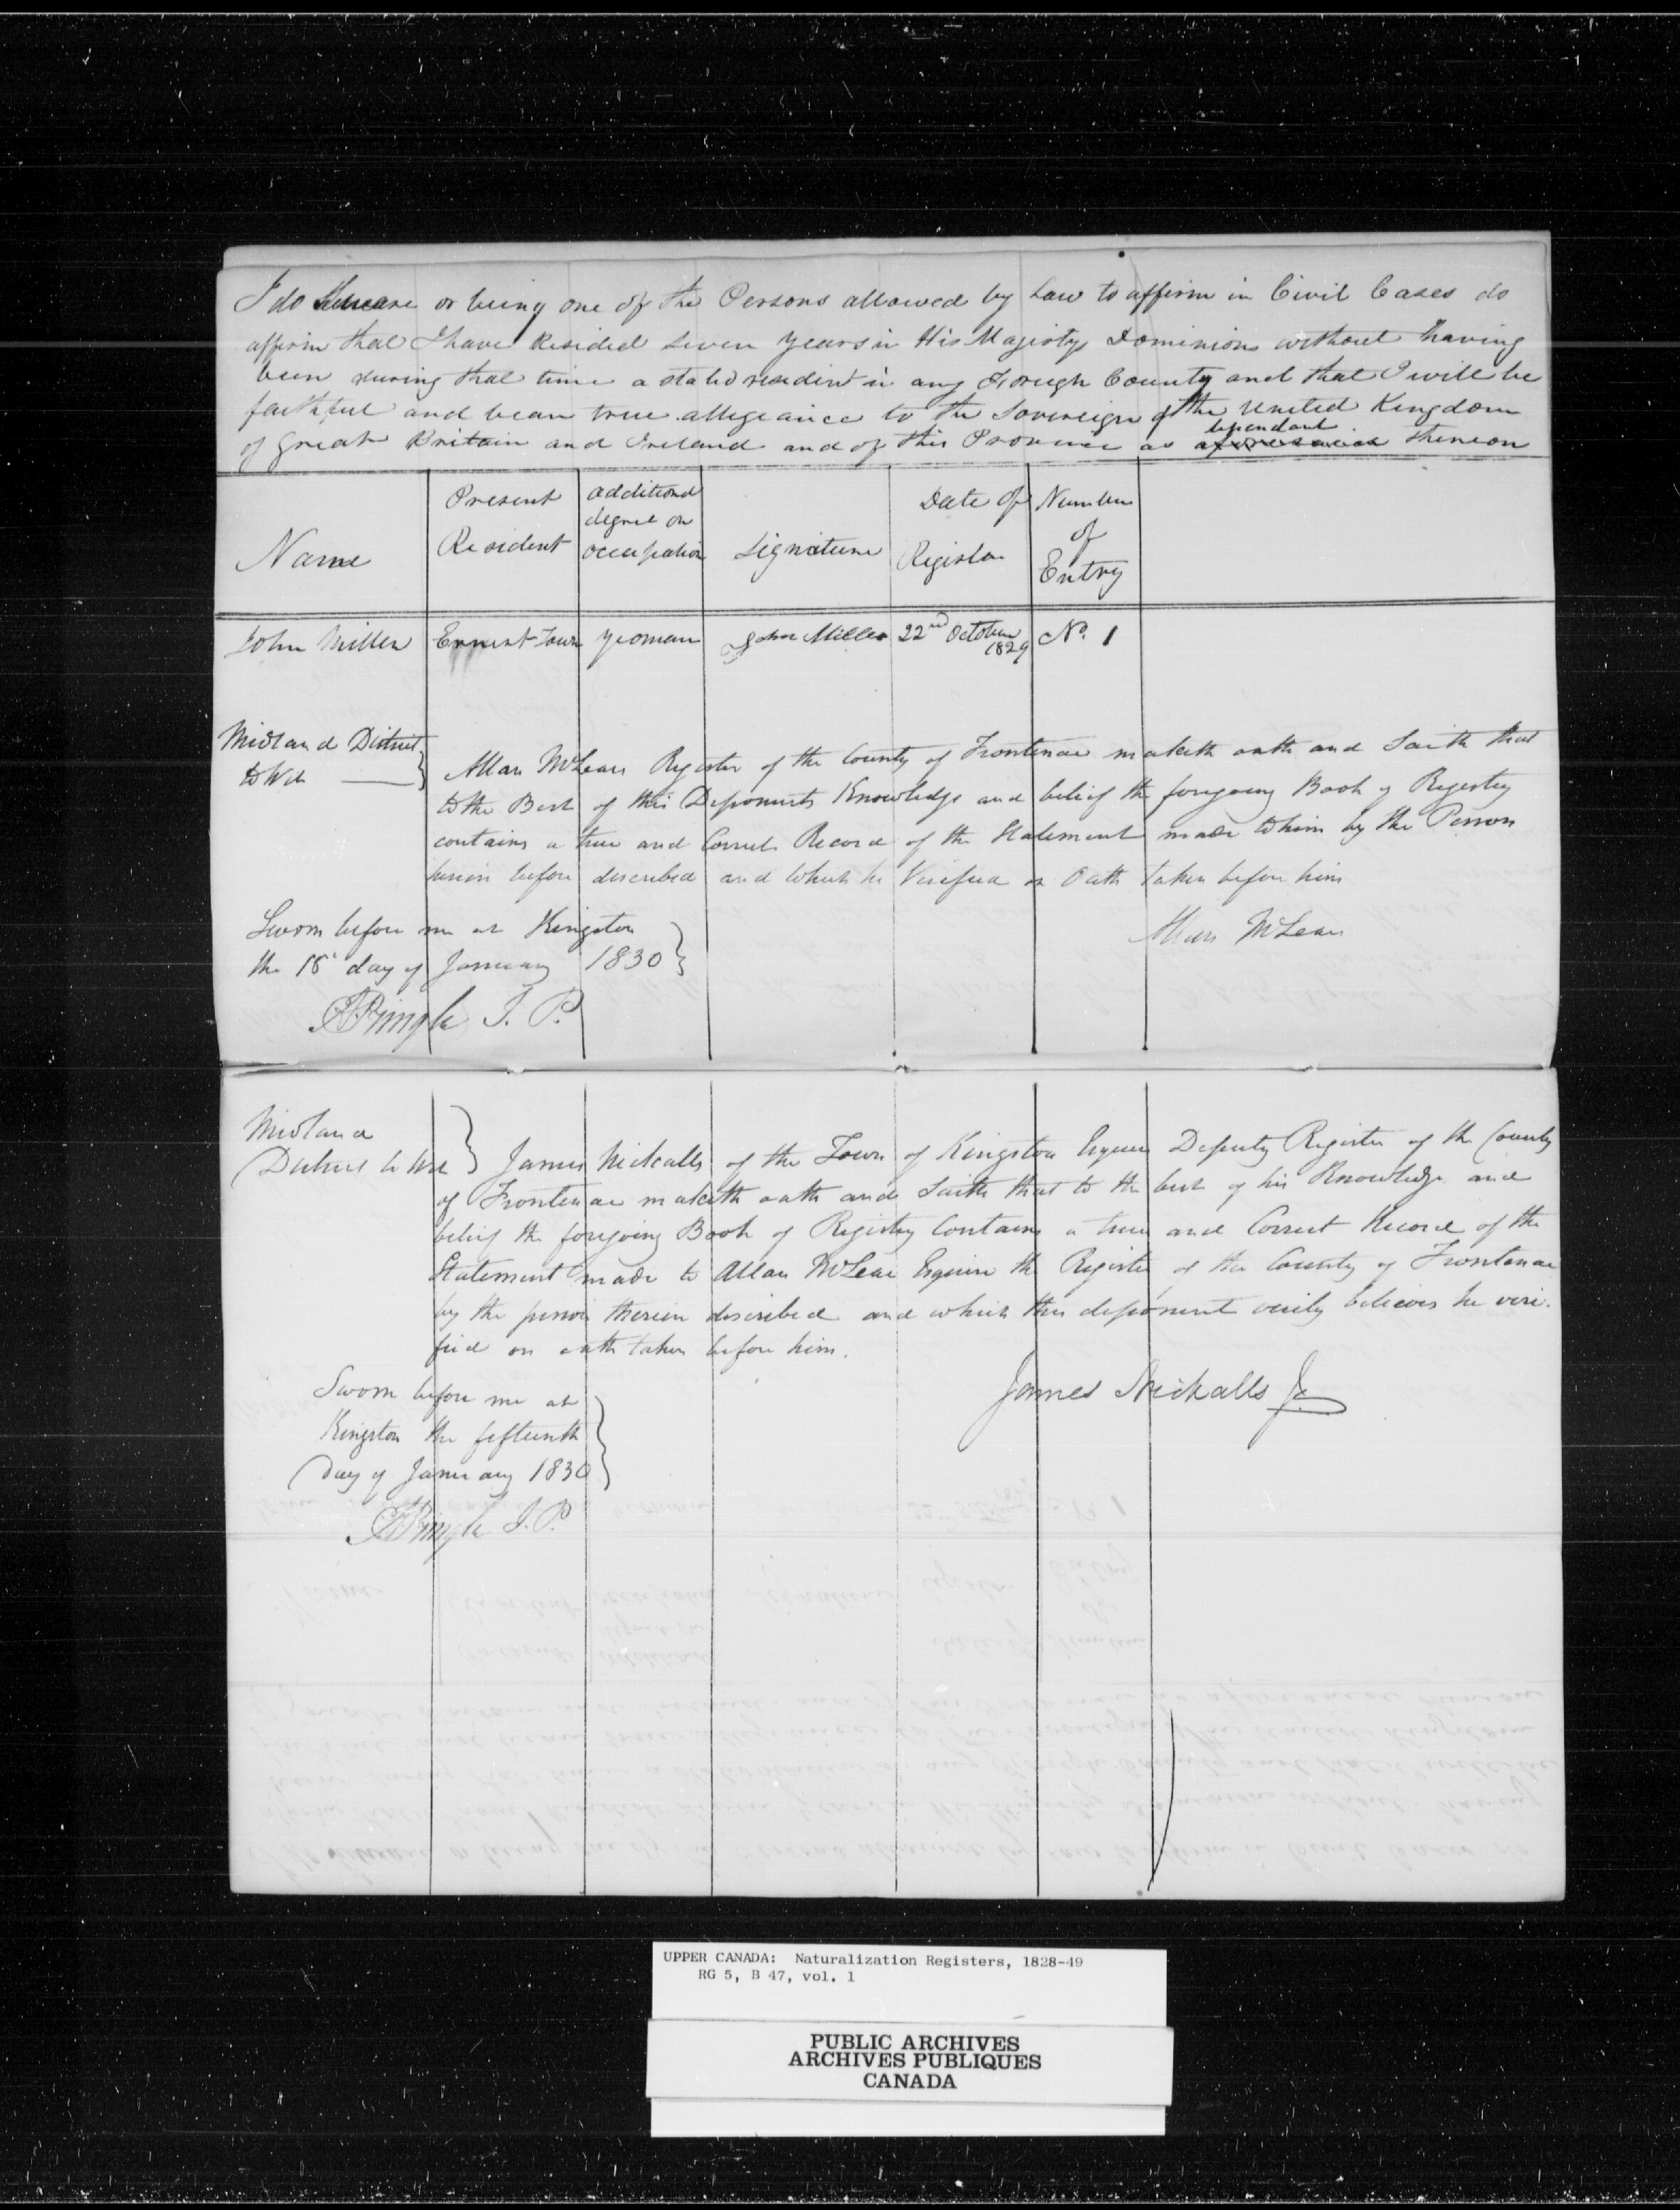 I do Sweare or being one of the Persons allowed by Law to affirm in Civil Cases do
affirm that I have Resided Seven years in His Majestys Dominions without having
been during that time a stated resident in any Foreign County and that I will be
faithful and bear true allegiance to the Sovereign of the United Kingdom
of Great Britain and Ireland and of this Province as dependant thereon
Name
Present Resident
additional degree or occupation
Signature
Date of Register
Number of Entry
John Miller Ernest Town yeoman John Miller 22nd October 1829 No. 1
Midland District
to Wit
Allan McLean Register of the County of Frontenac maketh oath and Saith that
to the Best of this Deponents Knowledge and belief the foregoing Book of Registry
contains a true and Correct Record of the Statement made to him by the Person
herein before described and which he Verified on Oath taken before him
Allan McLean
Sworn before me at Kingston
the 18 day of January 1830
Pringle J. P.
Midland
District to Wit
James Nickalls of the Town of Kingston Esquire Deputy Register of the County
of Frontenac maketh oath and Saith that to the best of his Knowledge and
belief the foregoing Book of Registry Contains a true and Correct Record of the
Statement made to Allan McLean Esquire the Register of the County of Frontenac
by the person therein described and which this deponent verily believes he veri-
fied on oath taken before him.
James Nickalls Jr
Sworn before me at
Kingston the fifteenth
Day of January 1830
Pringle J. P.
UPPER CANADA: Naturalization Registers, 1828-49
RG 5, B 47, vol. 1
PUBLIC ARCHIVES
ARCHIVES PUBLIQUES
CANADA